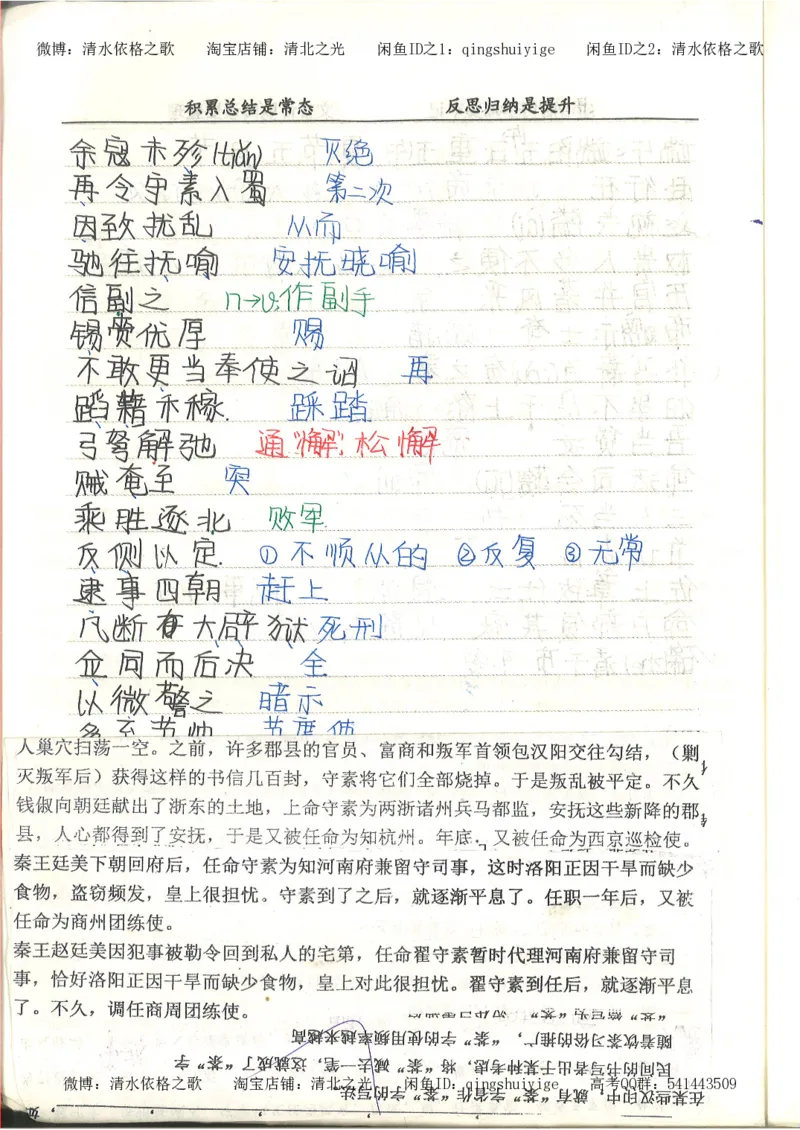 微博：清水依格之歌 淘宝店铺：清北之光 闲鱼ID之1：qingshuiyige 闲鱼ID之2：清水依格之歌
积累总结是常态 反思归纳是提升
余寇未殄(tiǎn) 灭绝
再令守素入蜀 第二次
因致扰乱 从而
驰往抚喻 安抚晓喻
信副之 n→v.作副手
锡赍优厚 赐
不敢更当奉使之诏 再
蹈藉禾稼. 踩踏
弓弩解弛 通"懈",松懈
贼奄至 突
乘胜逐北 败军
反侧以定. ①不顺从的 ②反复 ③无常
逮事四朝 赶上
凡断有大辟狱 死刑
佥同而后决 全
以微警之 暗示
人巢穴扫荡一空。之前，许多郡县的官员、富商和叛军首领包汉阳交往勾结，（剿
灭叛军后）获得这样的书信几百封，守素将它们全部烧掉。于是叛乱被平定。不久
钱俶向朝廷献出了浙东的土地，上命守素为两浙诸州兵马都监，安抚这些新降的郡
县，人心都得到了安抚，于是又被任命为知杭州。年底，又被任命为西京巡检使。
秦王廷美下朝回府后，任命守素为知河南府兼留守司事，这时洛阳正因干旱而缺少
食物，盗窃频发，皇上很担忧。守素到了之后，就逐渐平息了。任职一年后，又被
任命为商州团练使。
秦王赵廷美因犯事被勒令回到私人的宅第，任命翟守素暂时代理河南府兼留守司
事，恰好洛阳正因干旱而缺少食物，皇上对此很担忧。翟守素到任后，就逐渐平息
了。不久，调任商周团练使。
随着饮茶习俗的推广，"茶"字的使用频率越来越高
民间的书写者出于某种考虑，将"荼"减去一笔，这就成了"茶"字
在某些汉印中，就有"荼"字省作"茶"字的写法
微博：清水依格之歌 淘宝店铺：清北之光 闲鱼ID：qingshuiyige 高考QQ群：541443509